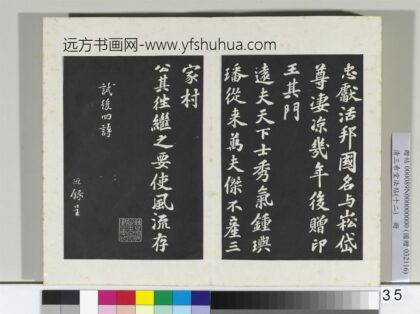 远方书画网-www.yfshuhua.com
忠獻活邦國名与崧岱
尊凄凉幾年後贈印
王其門
遠夫天下士秀氣鍾璵
璠從来萬夫傑不産三
家村
公其往繼之要使風流存
試後四詩
35